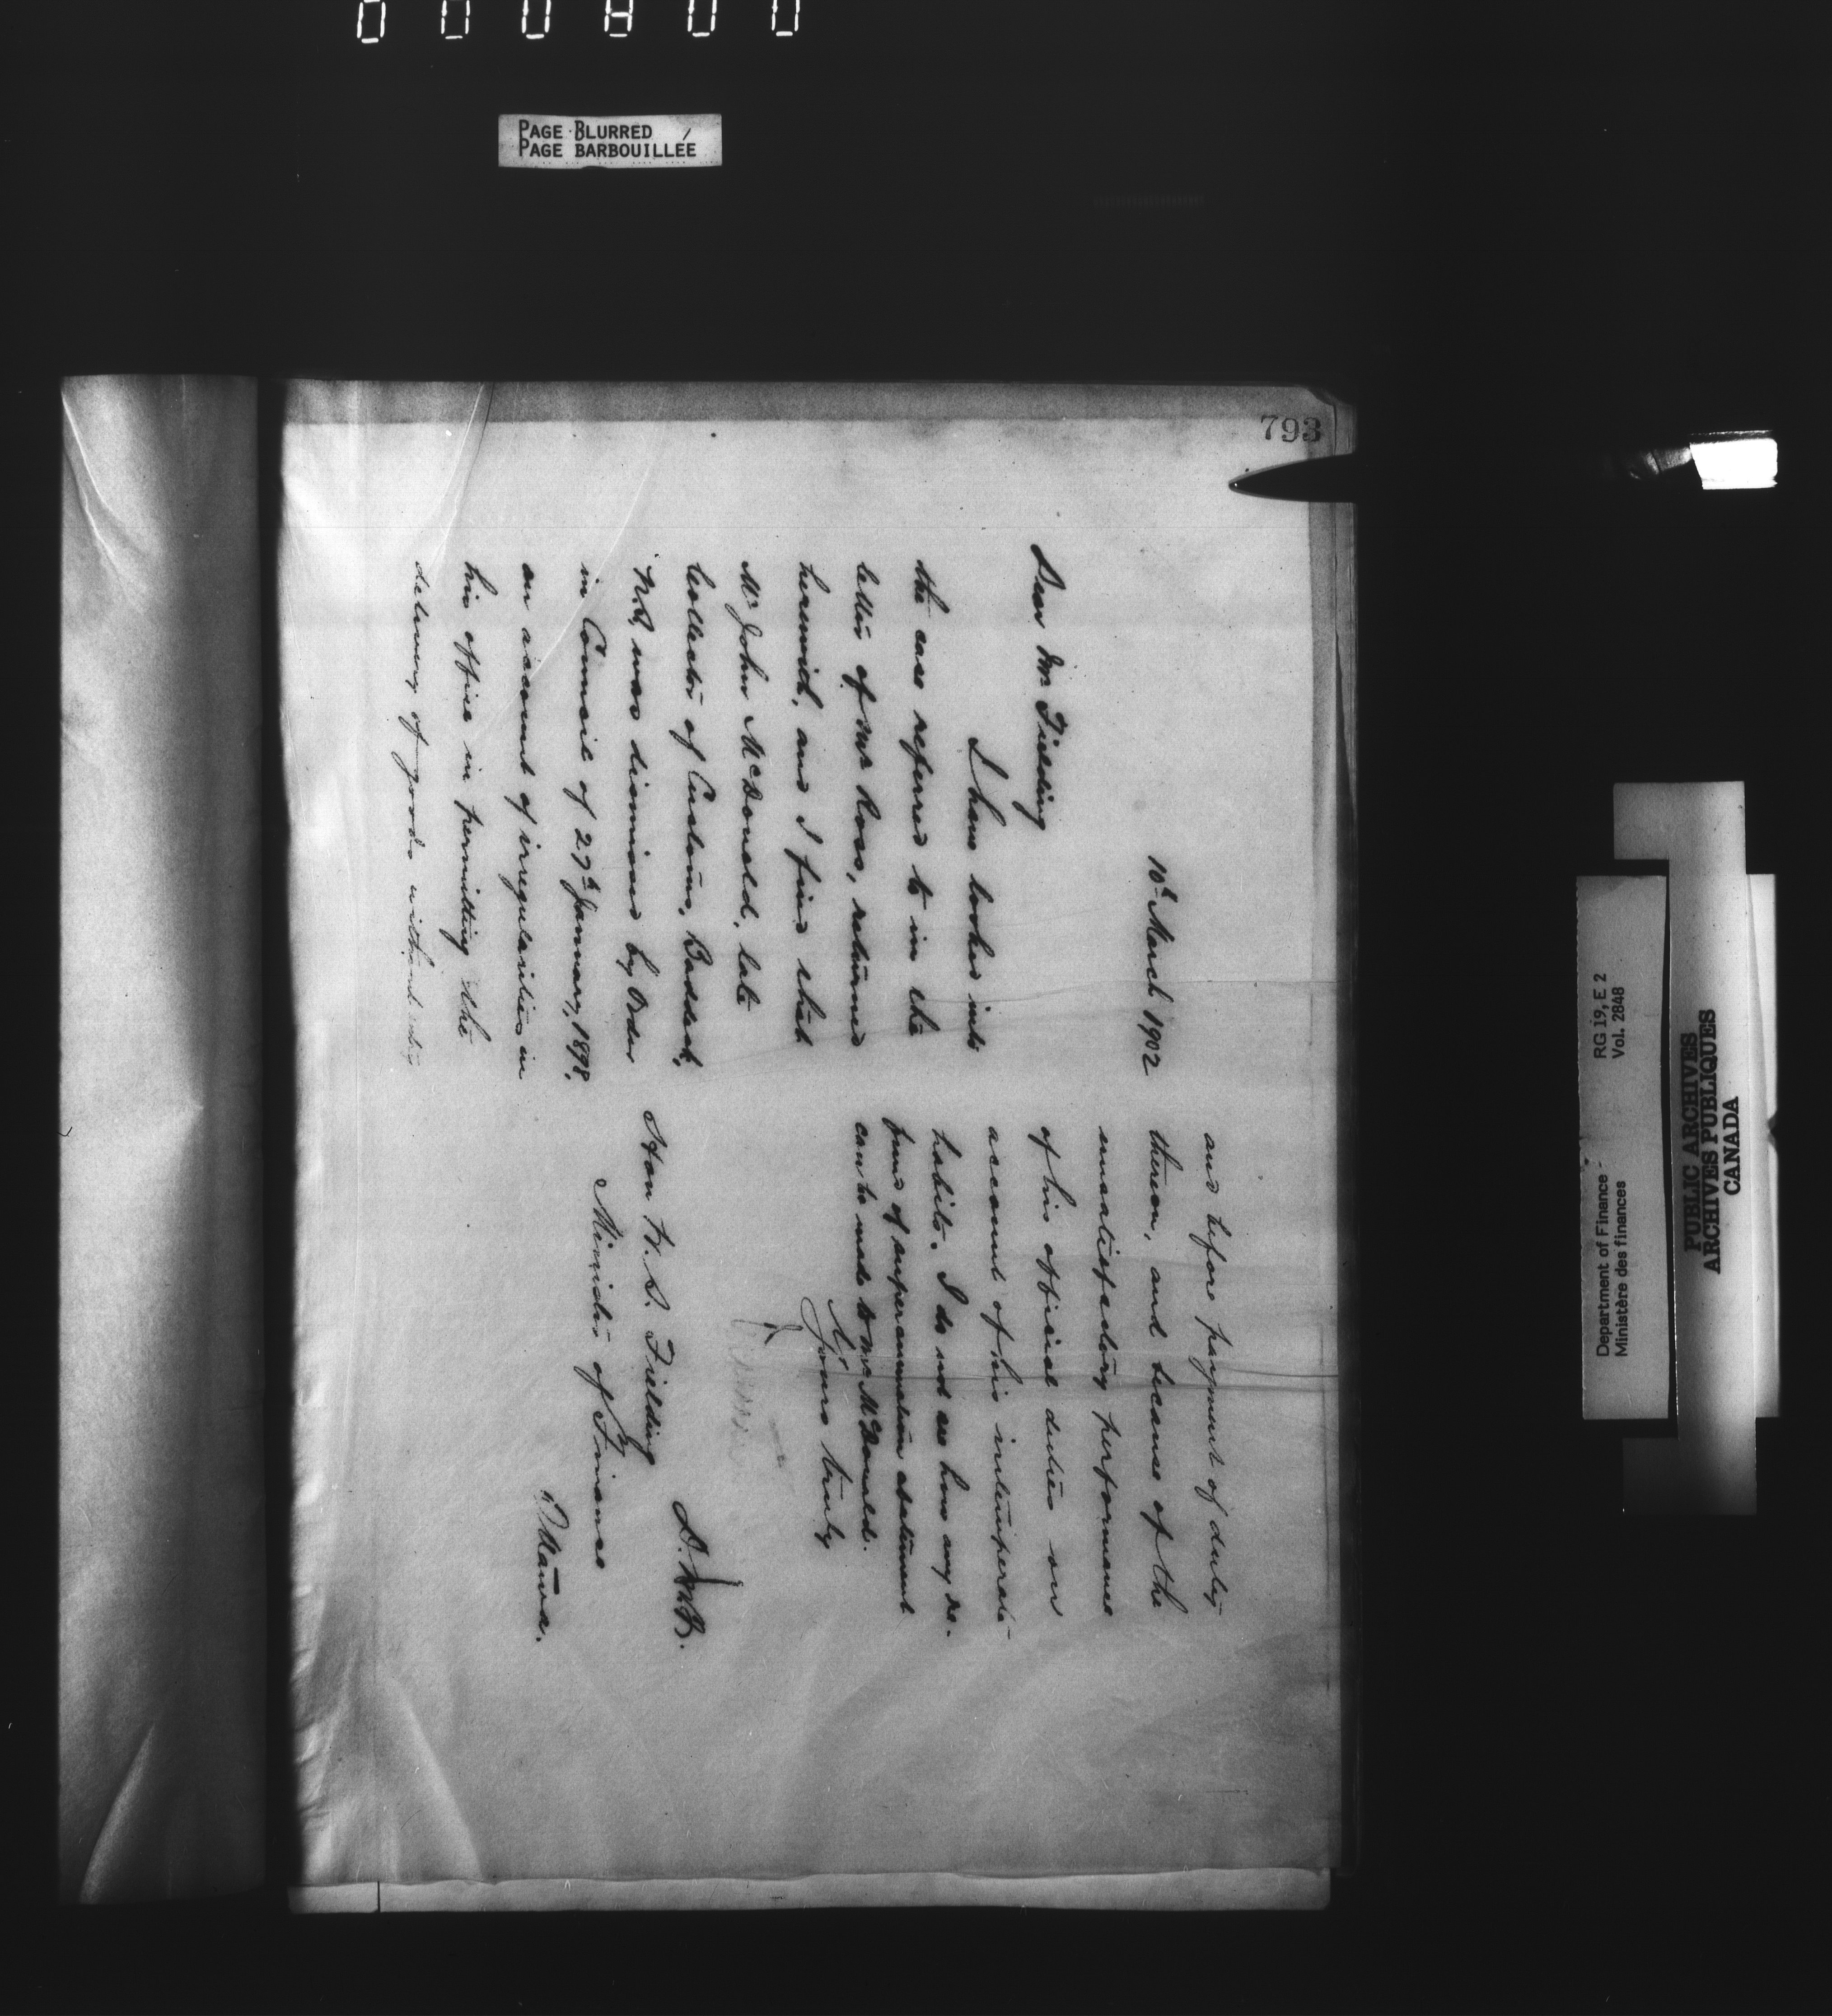 PAGE BLURRED
PAGE BARBOUILLÉE
793
10th March 1902
Dear Mr. Fielding
I have looked into
the case referred to in the
letter of Mr Ross, returned
herewith, and I find that
Mr John McDonald, late
Collector of Customs, Baddeck,
N.S., was dismissed by Order
in Council of 27th January, 1898,
on account of irregularities in
his office in permitting the
delivery of goods without entry
and before payment of duty
thereon, and because of the
unsatisfactory performance
of his official duties on
account of his intemperate
habits. I do not see how any re-
fund of superannuation abatement
can be made to Mr McDonald.
Yours truly
Hon W. S. Fielding
Minister of Finance
Ottawa.
RG 19, E 2
Vol. 2848
Department of Finance -
Ministère des finances
PUBLIC ARCHIVES
ARCHIVES PUBLIQUES
CANADA